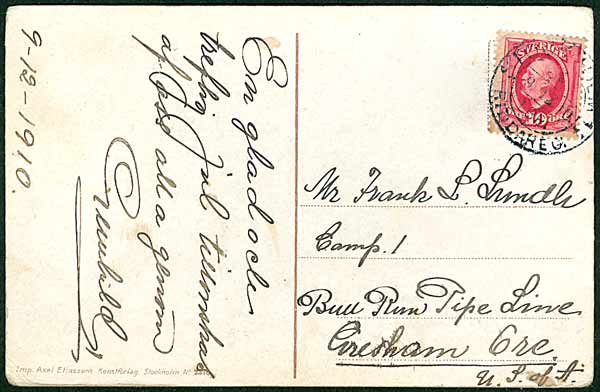 9-12-1910.
En glad och
treflig Jul tillönskas
af Oss alla genom
Gunhild
Imp. Axel Eliassons Konstförlag. Stockholm Nº
SVERIGE
10 ÖRE
Mr Frank L. Lundh
Camp. 1
Bull Run Pipe Line
Gresham Ore.
U. S. of A